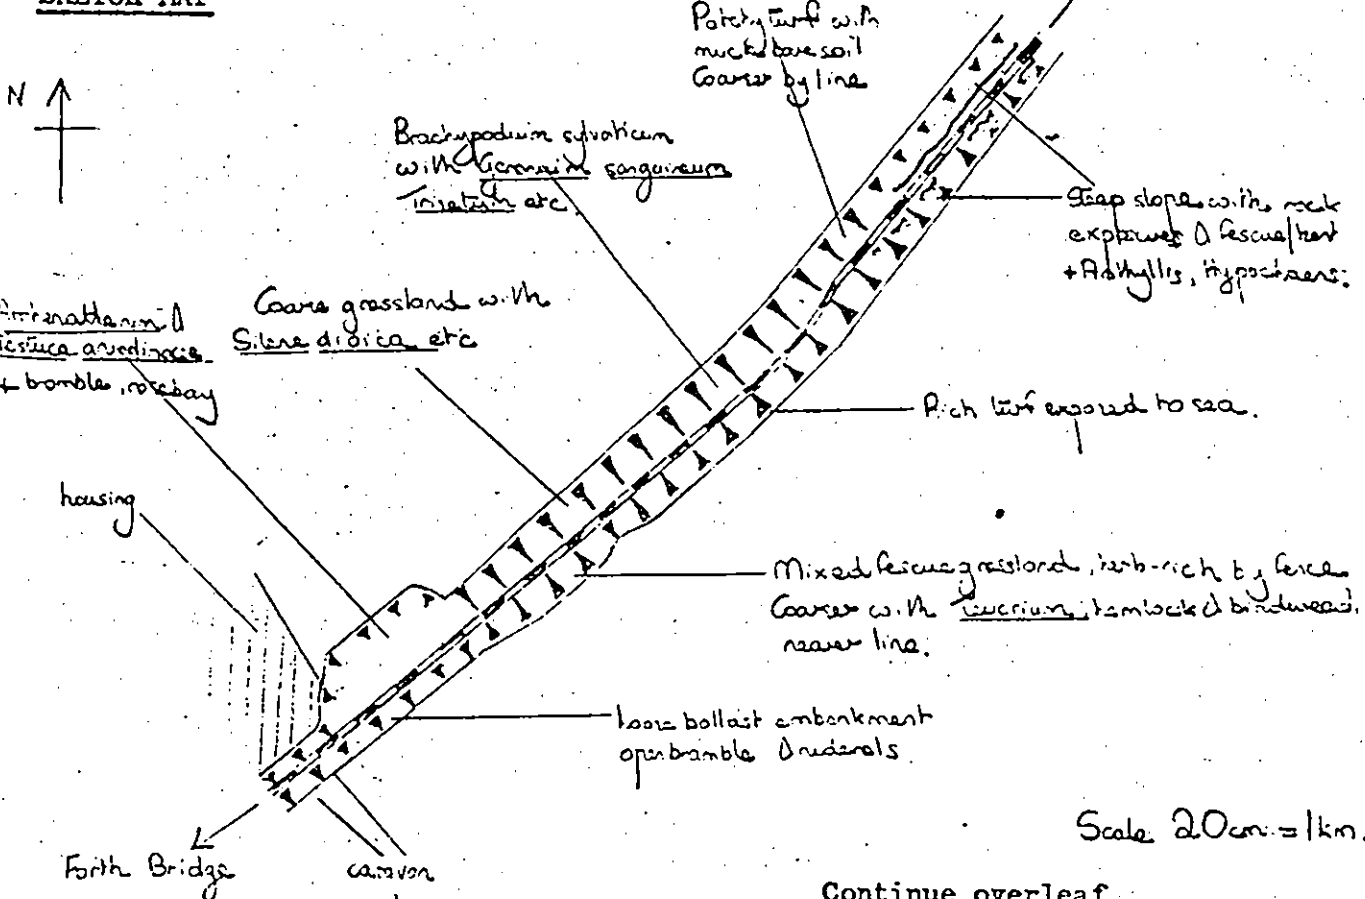 SKETCH MAP
N
Patchy turf with
much bare soil
Coarser by line
Brachypodium sylvaticum
with Geranium sanguineum
Trisetum etc.
Steep slope with rock
exposures & fescue/bent
+ Anthyllis, Hypochaeris.
Arrhenatherum &
Festuca arundinacea
+ bramble, rosebay
Coarse grassland with
Silene dioica etc
Rich turf exposed to sea.
housing
Mixed fescue grassland, herb-rich by fence
Coarser with Teucrium, hemlock & bindweed,
nearer line.
loose ballast embankment
open bramble & ruderals
Scale 20cm = 1km.
Forth Bridge
caravan
Continue overleaf